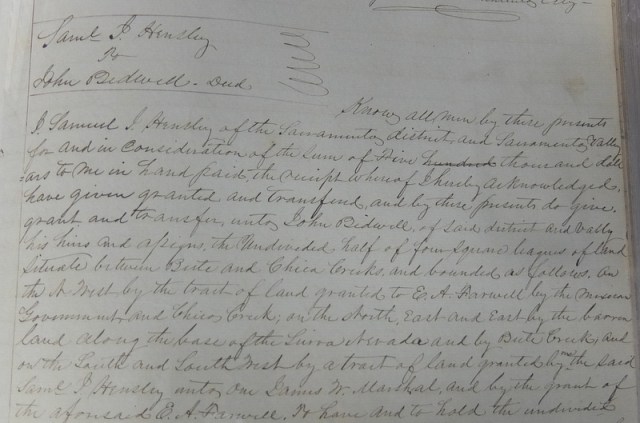 Saml J. Hensley
To
John Bidwell. Deed
Know all men by these presents
I Samuel J Hensley of the Sacramento district and Sacramento Vally
for and in Consideration of the Sum of Five hundred thousand doll
ars to me in hand paid, the receipt whereof I hereby acknowledged,
have given granted and transferred, and by these presents do give,
grant and transfer, unto John Bidwell, of said district and Vally
his heirs and assigns, the Undivided half of four Square leagues of land
Situate between Bute and Chico Creeks, and bounded as follows. On
the N. West by the tract of land granted to E. A. Farwell by the Mexican
Government, and Chico Creek; on the North, East and East by the barren
land along the base of the Sierra Nevada and by Bute Creek, and
on the South and South West by a tract of land granted by me the said
Saml J Hensley unto one James W. Marshal, and by the grant of
the aforesaid E. A. Farwell. To have and to hold the undivided